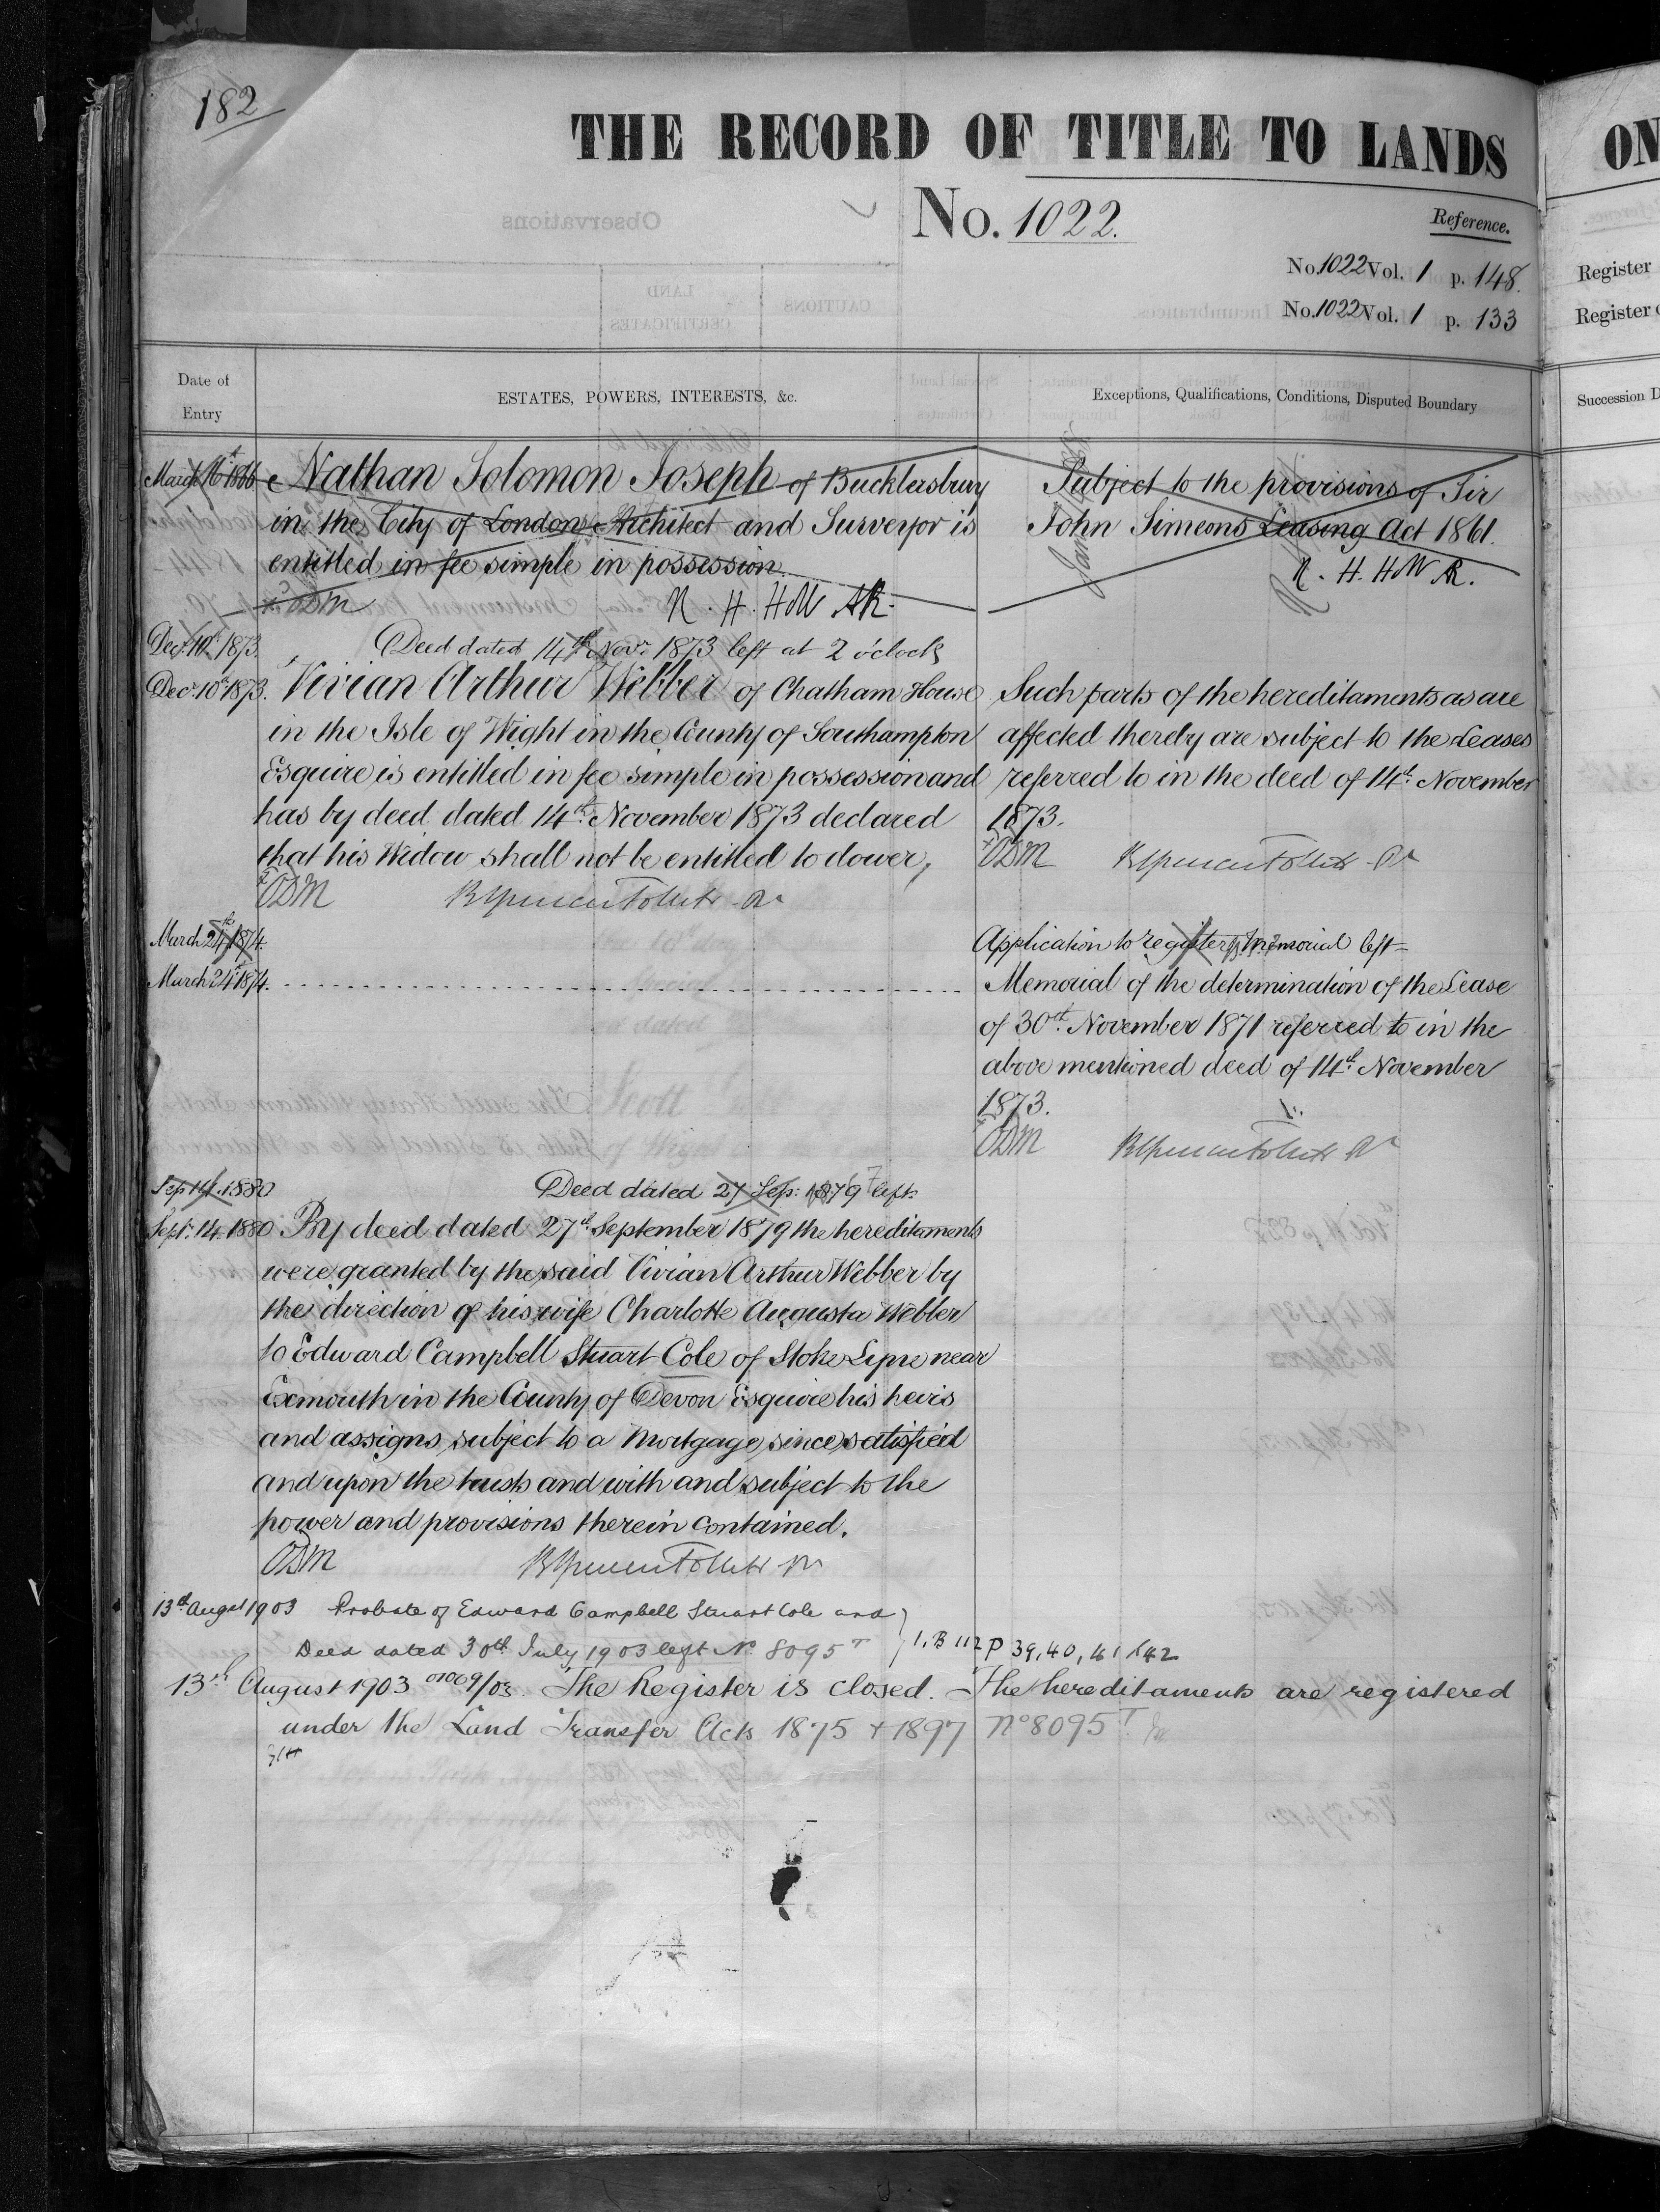 182
THE RECORD OF TITLE TO LANDS
No. 1022.
Reference.
No. 1022 Vol. 1 p. 148.
No. 1022 Vol. 1 p. 133
Date of Entry
ESTATES, POWERS, INTERESTS, &c.
Exceptions, Qualifications, Conditions, Disputed Boundary
March 16th 1866 Nathan Solomon Joseph of Bucklersbury
in the City of London Architect and Surveyor is
entitled in fee simple in possession.
ODM N. H. HW AR.
Subject to the provisions of Sir
John Simeons Leasing Act 1861.
N. H. HW AR.
Decr. 10th 1873. Deed dated 14th Novr. 1873 left at 2 o'clock
Decr. 10th 1873. Vivian Arthur Webber of Chatham House
in the Isle of Wight in the County of Southampton
Esquire is entitled in fee simple in possession and
has by deed dated 14th November 1873 declared
that his Widow shall not be entitled to dower,
ODM
Such parts of the hereditaments as are
affected thereby are subject to the Leases
referred to in the deed of 14th November
1873.
ODM
March 24th 1874. Application to register memorial left
March 24th 1874. Memorial of the determination of the Lease
of 30th November 1871 referred to in the
above mentioned deed of 14th November
1873.
ODM
Sep 14. 1880 Deed dated 27 Sep: 1879 left
Sept. 14. 1880 By deed dated 27th September 1879 the hereditaments
were granted by the said Vivian Arthur Webber by
the direction of his wife Charlotte Augusta Webber
to Edward Campbell Stuart Cole of Stoke Lyne near
Exmouth in the County of Devon Esquire his heirs
and assigns subject to a Mortgage since satisfied
and upon the trusts and with and subject to the
power and provisions therein contained.
ODM
13th August 1903 Probate of Edward Campbell Stuart Cole and
Deed dated 30th July 1903 left No 8095 T 1, B 112 P 39, 40, 41 & 42
13th August 1903 The Register is closed. The hereditaments are registered
under the Land Transfer Acts 1875 + 1897 No 8095 T.
ON
Register
Register
Succession D